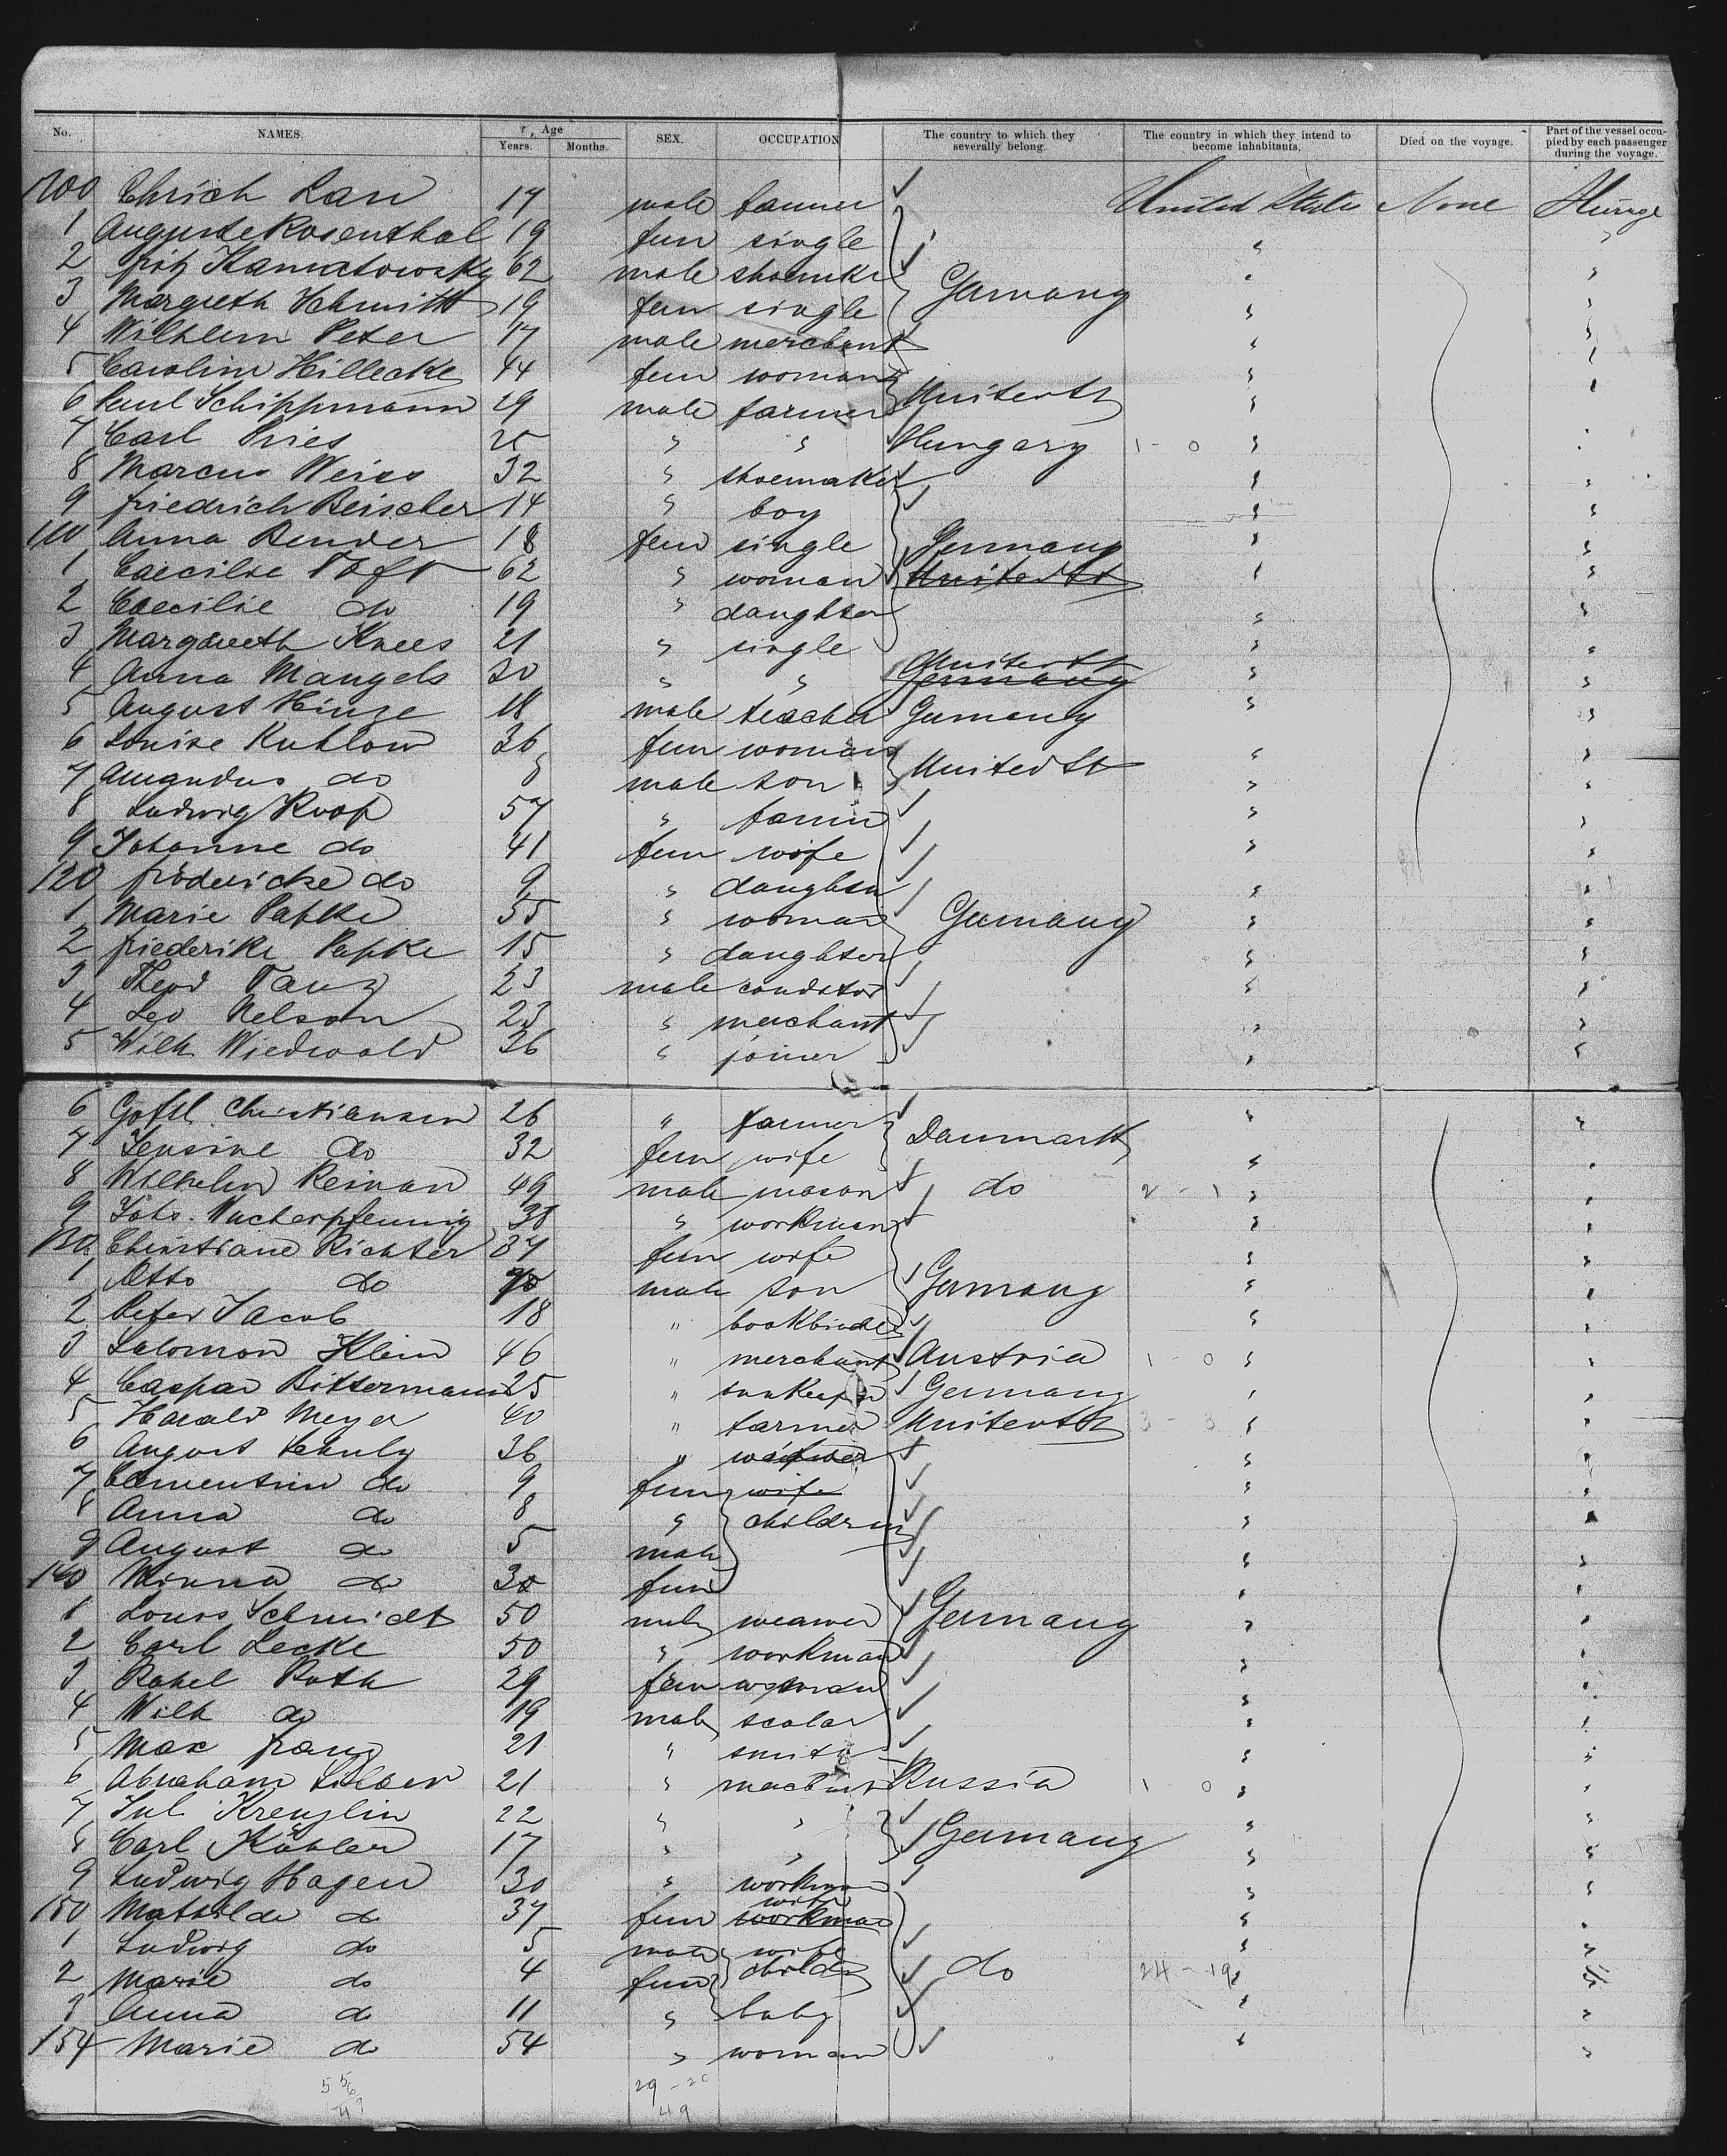 No. NAMES. Age Years. Months. SEX. OCCUPATION The country to which they severally belong. The country in which they intend to become inhabitants. Died on the voyage. Part of the vessel occupied by each passenger during the voyage.
100 Lau 17 male farmer United State None
1 Auguste Rosenthal 19 fem single
2 62 male shoemkr Germany
3 Margreth Schmitt 19 fem single
4 Wilhelm Peter 17 male merchant
5 Carolin Hillecke 44 fem woman
6 Paul Schippmann 29 male farmer United St
7 Carl Pries 25 " " Hungary 1 - 0
8 Marcus Weiss 32 " shoemaker
9 friedrich Beischer 14 " boy
110 Anna Bender 18 fem single Germany
1 Caecilie Toft 62 " woman United St
2 Caecilie do 19 " daughter
3 Margareth Knees 21 " single United St
4 Anna Mangels 20 " " Germany
5 August Hinze 18 male teacher Germany
6 Louise Kuhlow 36 fem woman United St
7 Amandus do male son
8 Ludwig Koop 57 " farmer
9 Johanne do 41 fem wife
120 do 9 " daughter
1 Marie Papke 55 " woman Germany
2 friederike Papke 15 " daughter
3 Theod 23 male conditor
4 Leo Nelson 23 " merchant
5 Wilh. Wiedwald 36 " joiner
6 Gottl. Christiansen 26 " farmer Danmark
7 Jensine do 32 fem wife
8 Wilhelm Reiman 49 male mason do 2 - 1
9 Joh. Wacherpfennig 38 " workman
130 Christiane Richter 37 fem wife
1 Otto do male son Germany
2 Peter Jacob 18 " bookbinder
3 Salomon Klein 46 " merchant Austria 1 - 0
4 Caspar Bittermann 25 " Germany
5 Harald Meyer 40 " farmer United St 3 - 3
6 August Schulz 36 "
7 Clementine do 9 fem wife
8 Anna do 8 " children
9 August do 5 male
140 Minna do fem
1 Louis Schmidt 50 male weawer Germany
2 Carl Lecke 50 " workman
3 Rahel Roth 29 fem woman
4 Wilh do 19 male scolar
5 Max franz 21 " smith
6 Abraham 21 " Russia 1 0
7 Jul. Kreuzlin 22 " "
8 Carl Köhler 17 " " Germany
9 Ludwig Hagen 30 " workman
150 Mathilde do 37 fem workman wife
1 Ludwig do 5 male wife
2 Marie do 4 fem do 24 - 19
3 Anna do 11 " baby
154 Marie do 54 " woman
29 - 20
49